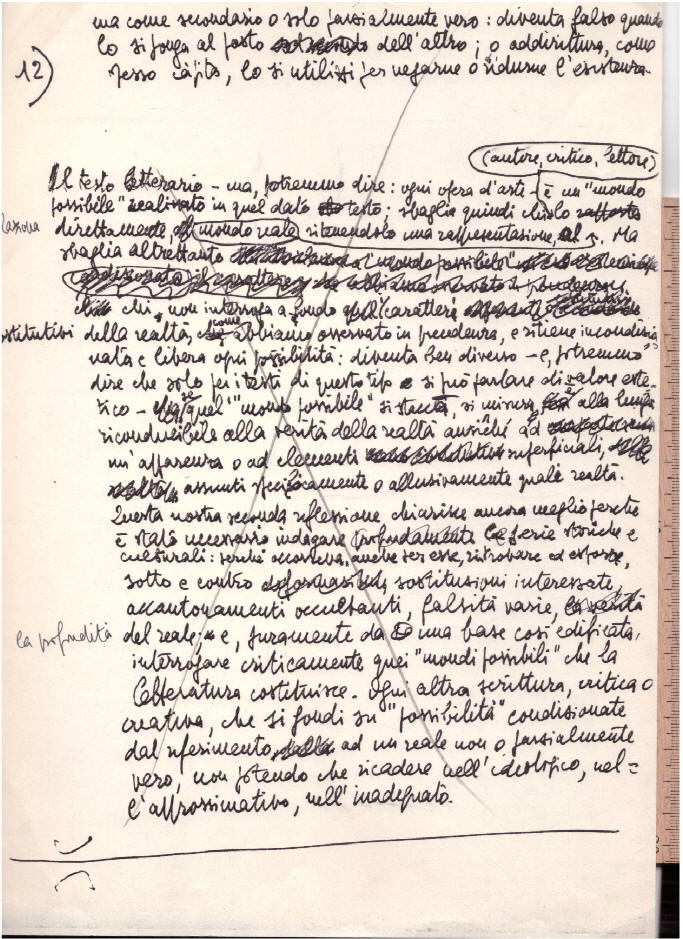 ma come secondario o solo parzialmente vero: diventa falso quando
lo si ponga al posto dell'altro; o addirittura, come
12)
spesso càpita, lo si utilizzi per negarne o ridurne l'esistenza.
(autore, critico, lettore)
Il testo letterario – ma, potremmo dire: ogni opera d'arte – è un "mondo
possibile" realizzato in quel dato testo; sbaglia quindi chi lo
direttamente, al mondo reale ritenendolo una rappresentazione. Ma
sbaglia altrettanto
chi, non interroga a fondo quei caratteri
costitutivi della realtà, come abbiamo osservato in precedenza, e ritiene incondizio
nata e libera ogni possibilità: diventa ben diverso – e, potremmo
dire che solo per i testi di questo tipo si può parlare di valore este-
tico – se quel "mondo possibile" si stacca, si misura, ed è alla lunga
riconducibile alla verità della realtà anziché ad
un'apparenza o ad elementi superficiali,
assunti specificamente o allusivamente quale realtà.
Questa nostra seconda riflessione chiarisce ancora meglio perché
è stato necessario indagare profondamente le serie storiche e
culturali: perché occorreva, anche per esse, ritrovare ed esporre,
sotto e contro sostituzioni interessate,
accantonamenti occultanti, falsità varie,
la profondità del reale; e, puramente da una base così edificata,
interrogare criticamente quei "mondi possibili" che la
letteratura costituisce. Ogni altra scrittura, critica o
creativa, che si fondi su "possibilità" condizionate
dal riferimento ad un reale non o parzialmente
vero, non potendo che ricadere nell'ideologico, nel=
l'approssimativo, nell'inadeguato.